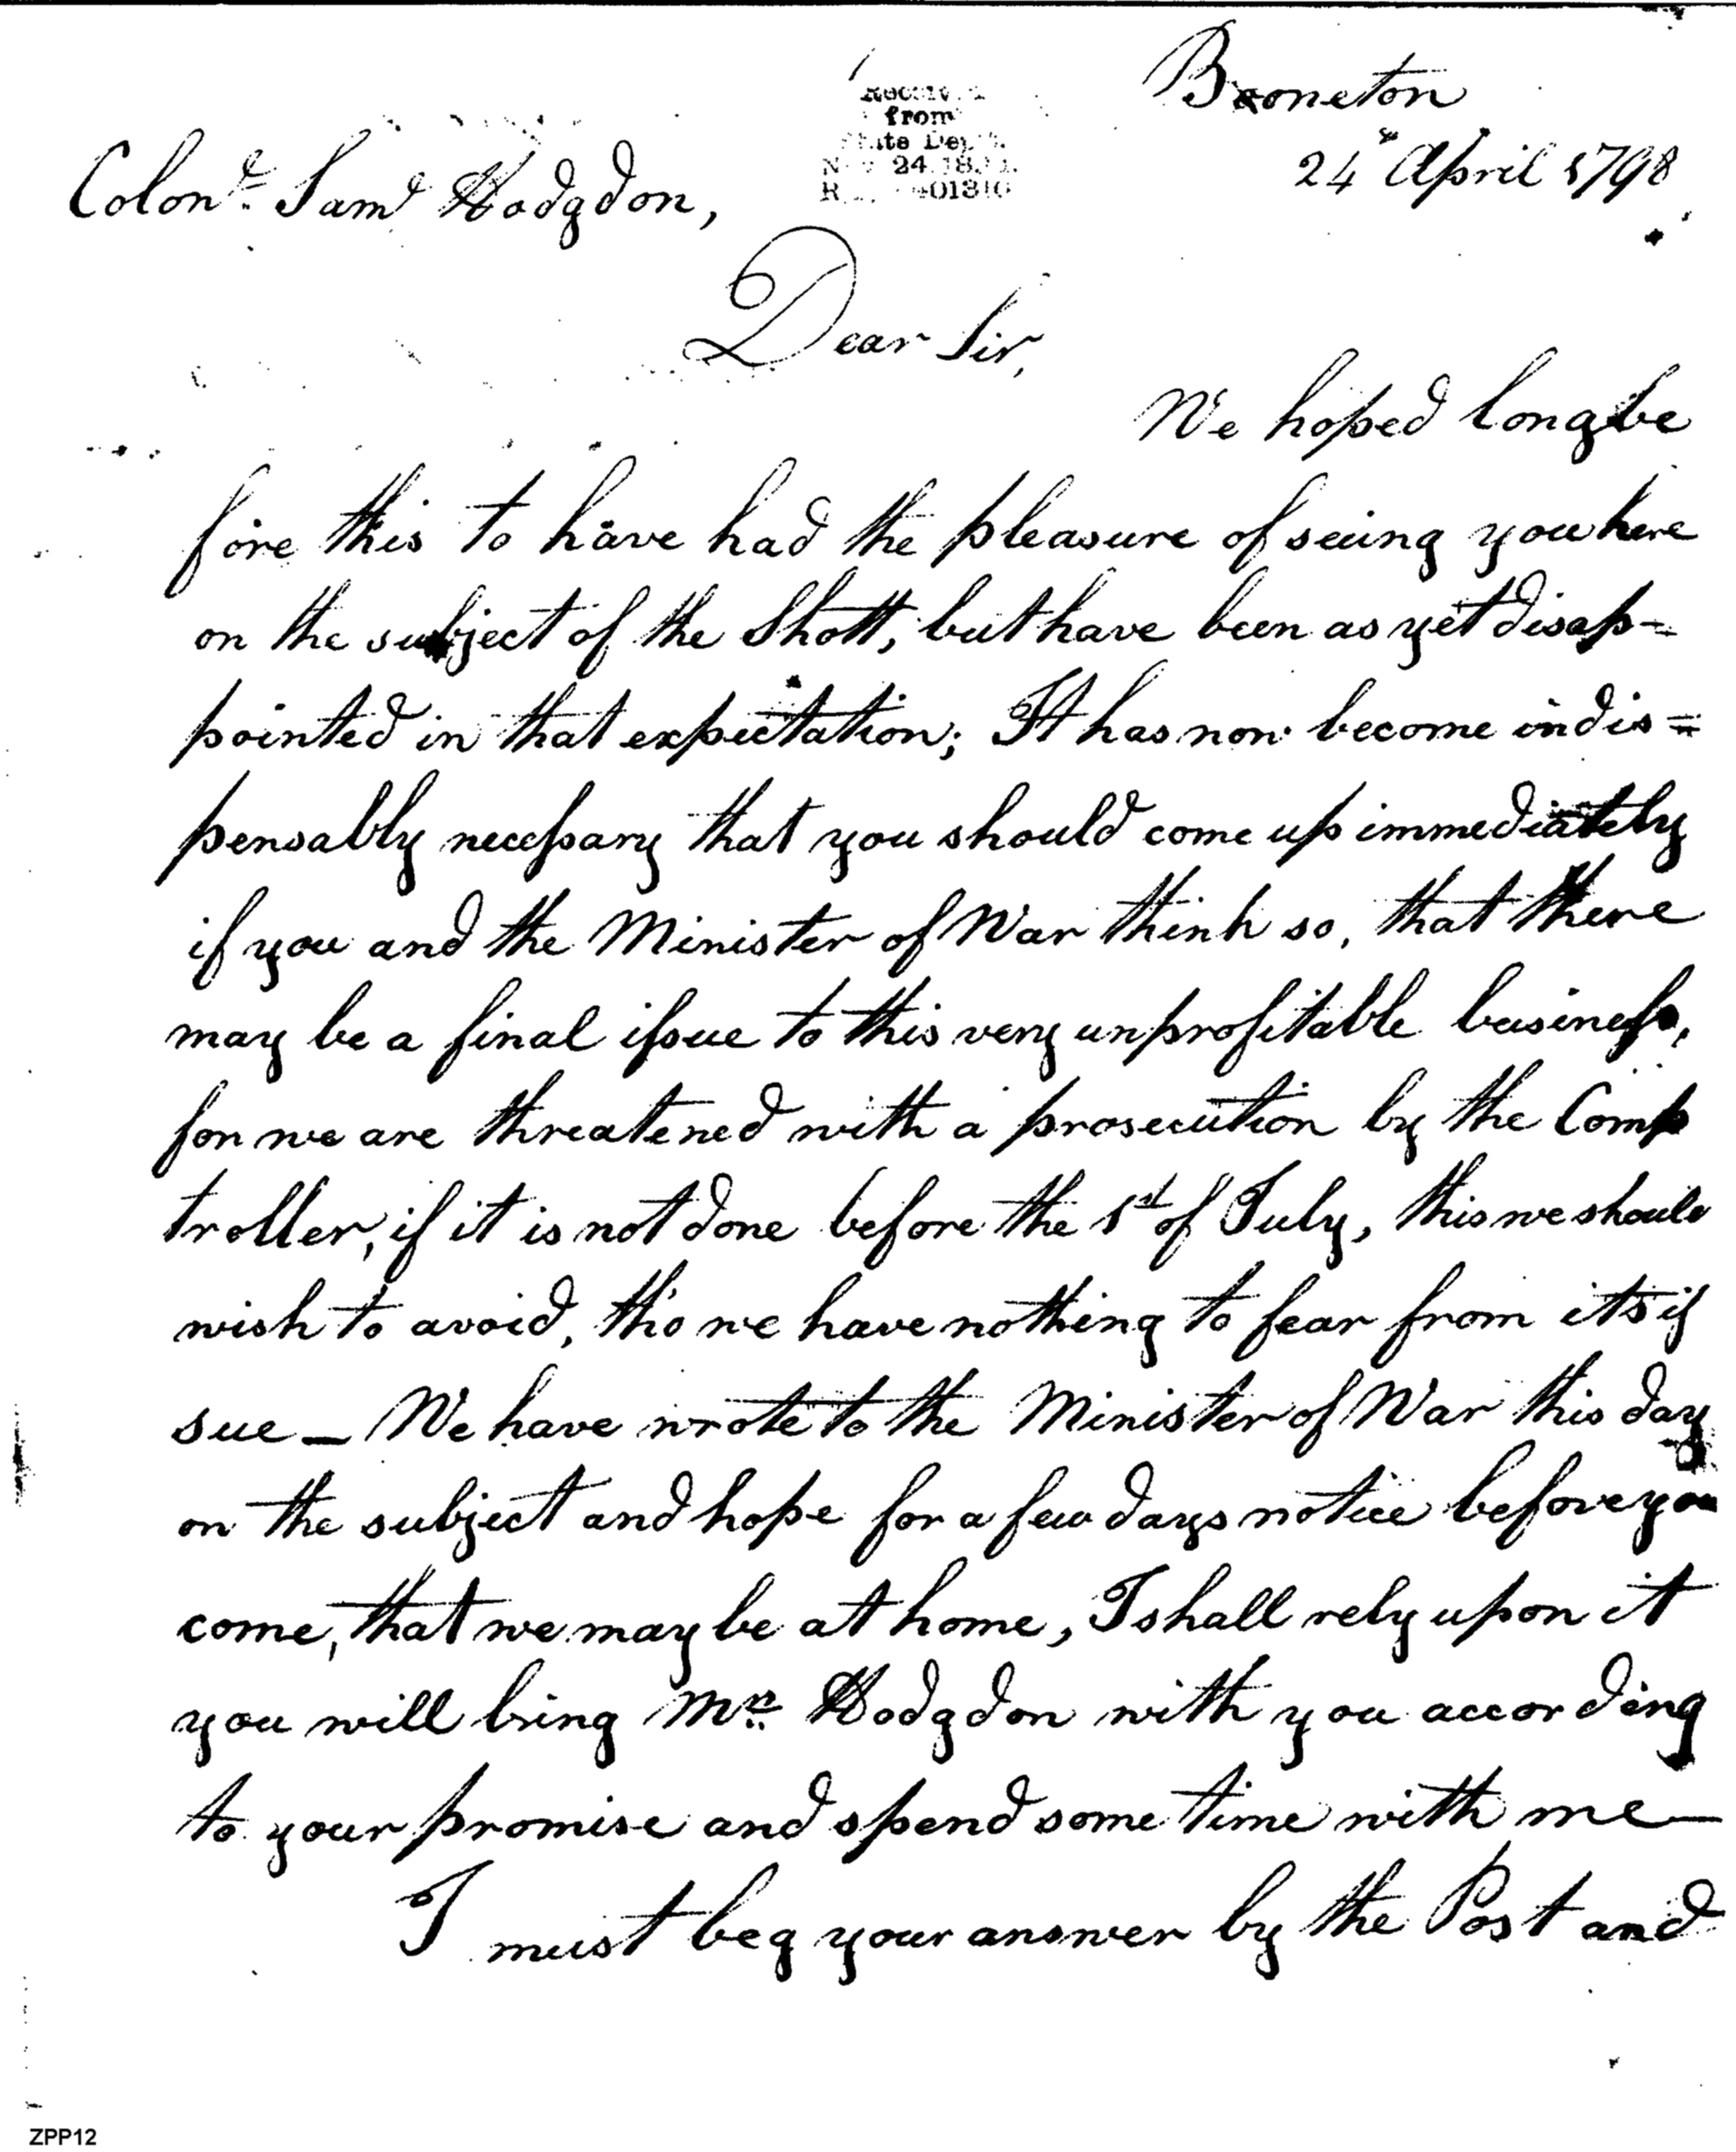 Booneton
24th April 1798
Received
from
State Dept.
24
Colonl. Saml Hodgdon,
Dear Sir,
We hoped long be
fore this to have had the pleasure of seeing you here
on the subject of the Shott, but have been as yet disap=
pointed in that expectation; It has now become indis=
pensably necessary that you should come up immediately
if you and the Minister of War think so, that there
may be a final issue to this very unprofitable business,
for we are threatened with a prosecution by the Comp
troller, if it is not done before the 1st of July, this we should
wish to avoid, tho we have nothing to fear from its is
sue _ We have wrote to the Minister of War this day
on the subject and hope for a few days notice before you
come, that we may be at home, I shall rely upon it
you will bring Mrs. Hodgdon with you according
to your promise and spend some time with me—
I must beg your answer by the Post and
ZPP12